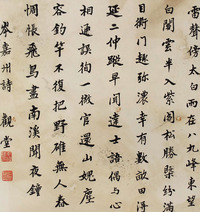 雷聲傍太白雨在八九峯東望
白閣雲半入紫閣松勝槩紛滿
目衡门趣弥濃幸有數畝田得
延二仲蹤早聞達士語偶与心
相通誤狥一微官還山媿塵
容釣竿不復把野碓無人舂
惆悵飛鳥盡南溪聞夜鐘
岑嘉州詩 觀堂